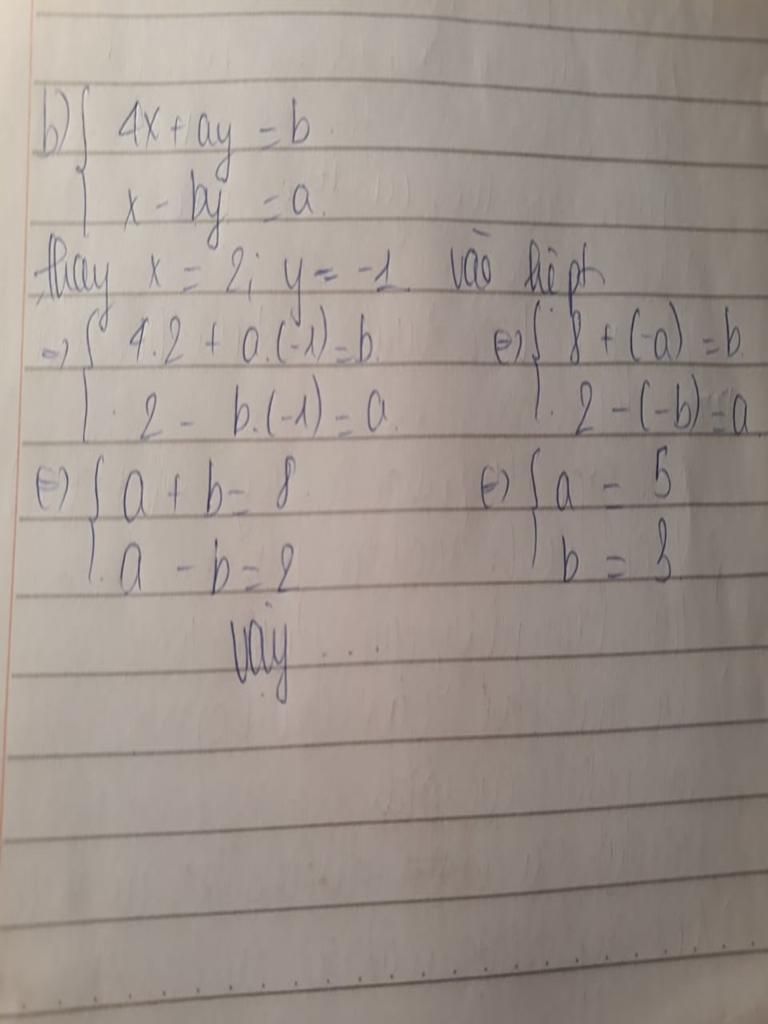 b) { 4x + ay = b
x - by = a.
thay x = 2; y = -1 vào hệ pt
=> { 4.2 + a.(-1) = b. <=> { 8 + (-a) = b.
2 - b.(-1) = a. 2 - (-b) = a.
<=> { a + b = 8 <=> { a = 5
a - b = 2 b = 3
Vậy ....